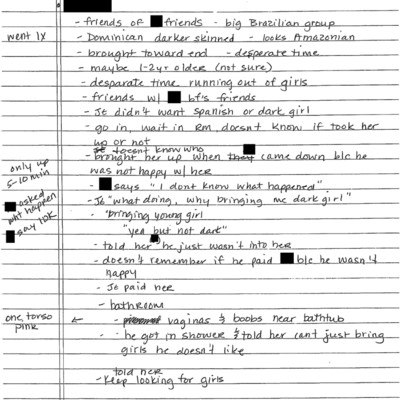 - friends of friends - big Brazilian group
went 1x - Dominican darker skinned - looks Amazonian
- brought toward end - desperate time
- maybe 1-2yr older (not sure)
- desparate time running out of girls
- friends w/ bf's friends
- Je didn't want Spanish or dark girl
- go in, wait in Rm, doesnt know if took her
up or not
doesnt know who
- brought her up when they came down b/c he
only up
5-10 min
was not happy w/ her
- says "I dont know what happened"
asked
wht happen
- Je "what doing, why bringing me dark girl"
say IDK
- "bringing young girl
"yea but not dark"
- told her he just wasn't into her
- doesn't remember if he paid b/c he wasn't
happy
- Je paid her
- bathroom
one, torso
pink
← - vaginas & boobs near bathtub
- he got in shower & told her cant just bring
girls he doesn't like
told her
- Keep looking for girls